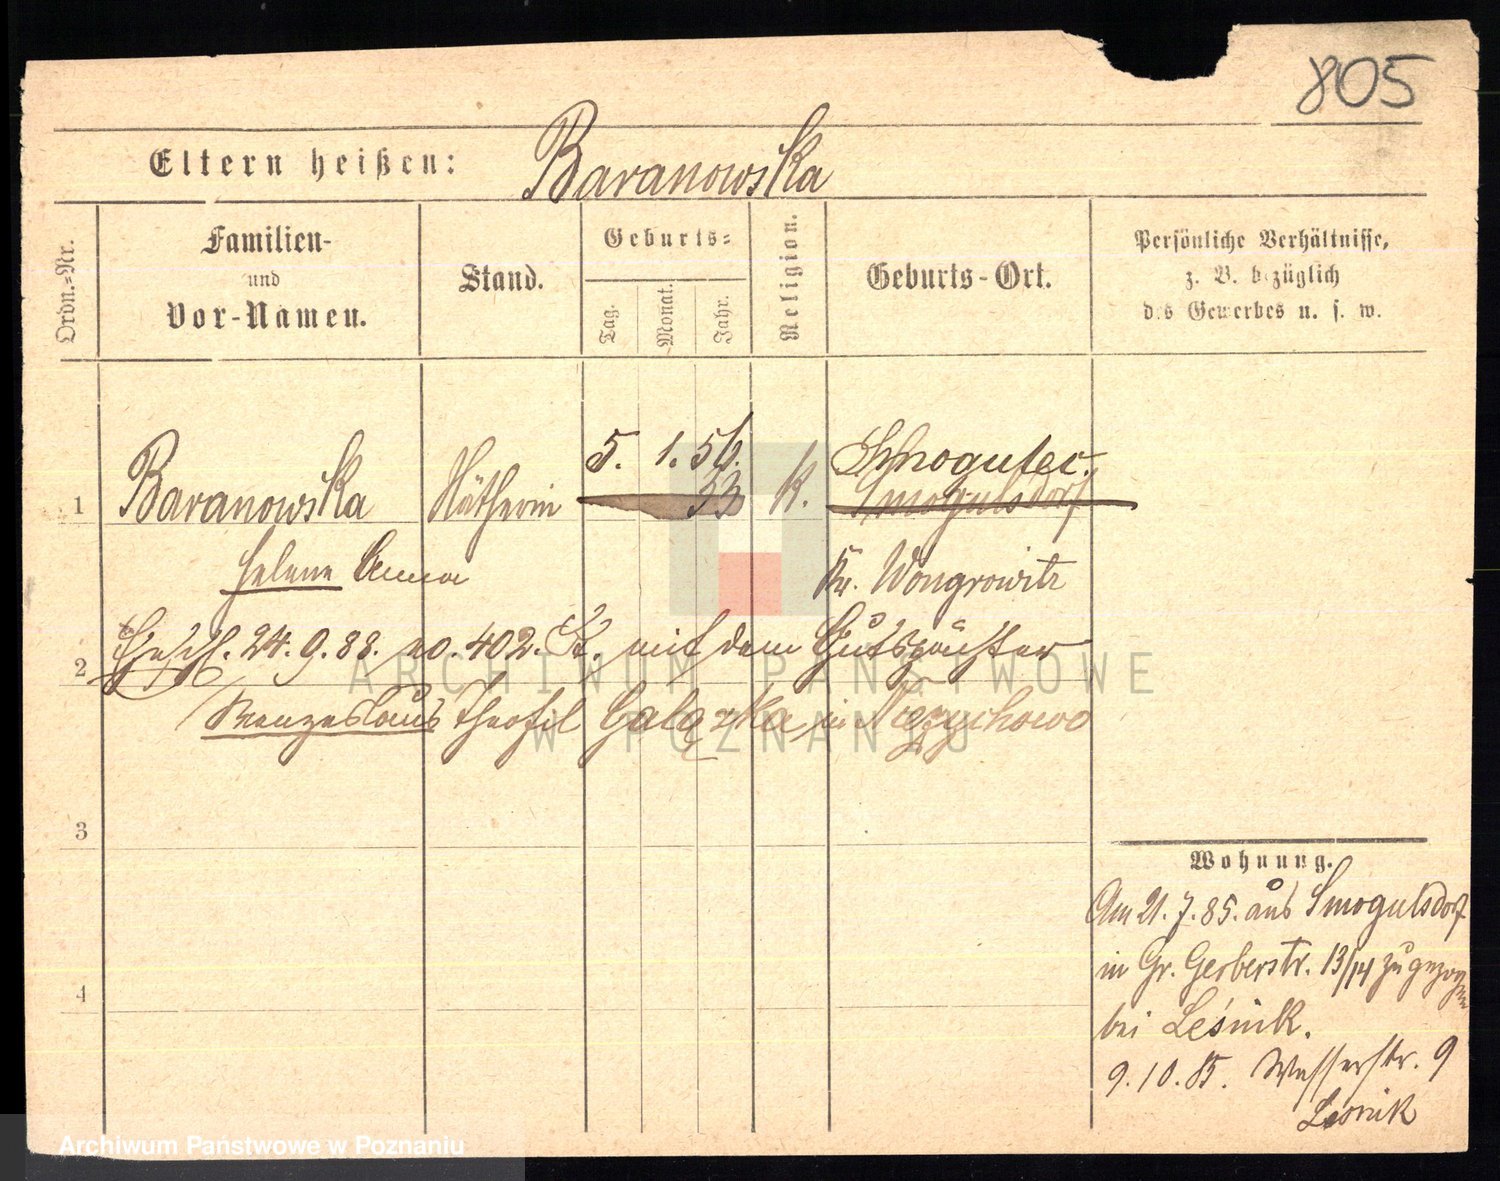 805
Eltern heißen: Baranowska
Ordn.-Nr.
Familien- und Vor-Namen.
Stand.
Geburts-
Tag.
Monat.
Jahr.
Religion.
Geburts-Ort.
Persönliche Verhältnisse,
z. B. bezüglich
des Gewerbes u. s. w.
1 Baranowska Nätherin 5. 1. 56. K. Smogulec.
33 Smogulsdorf
Helene Anna Kr. Wongrowitz
2 24. 9. 88. no. 402. mit dem Gutspächter
Wenzeslaus Theofil Galązka in Niezychowo
3
4
Wohnung.
Am 21. 7. 85. aus Smogulsdorf
in Gr. Gerberstr. 13/14 zugezogen
bei Leśnik.
9. 10. 85. Wasserstr. 9
Leśnik
ARCHIWUM PAŃSTWOWE
W POZNANIU
Archiwum Państwowe w Poznaniu